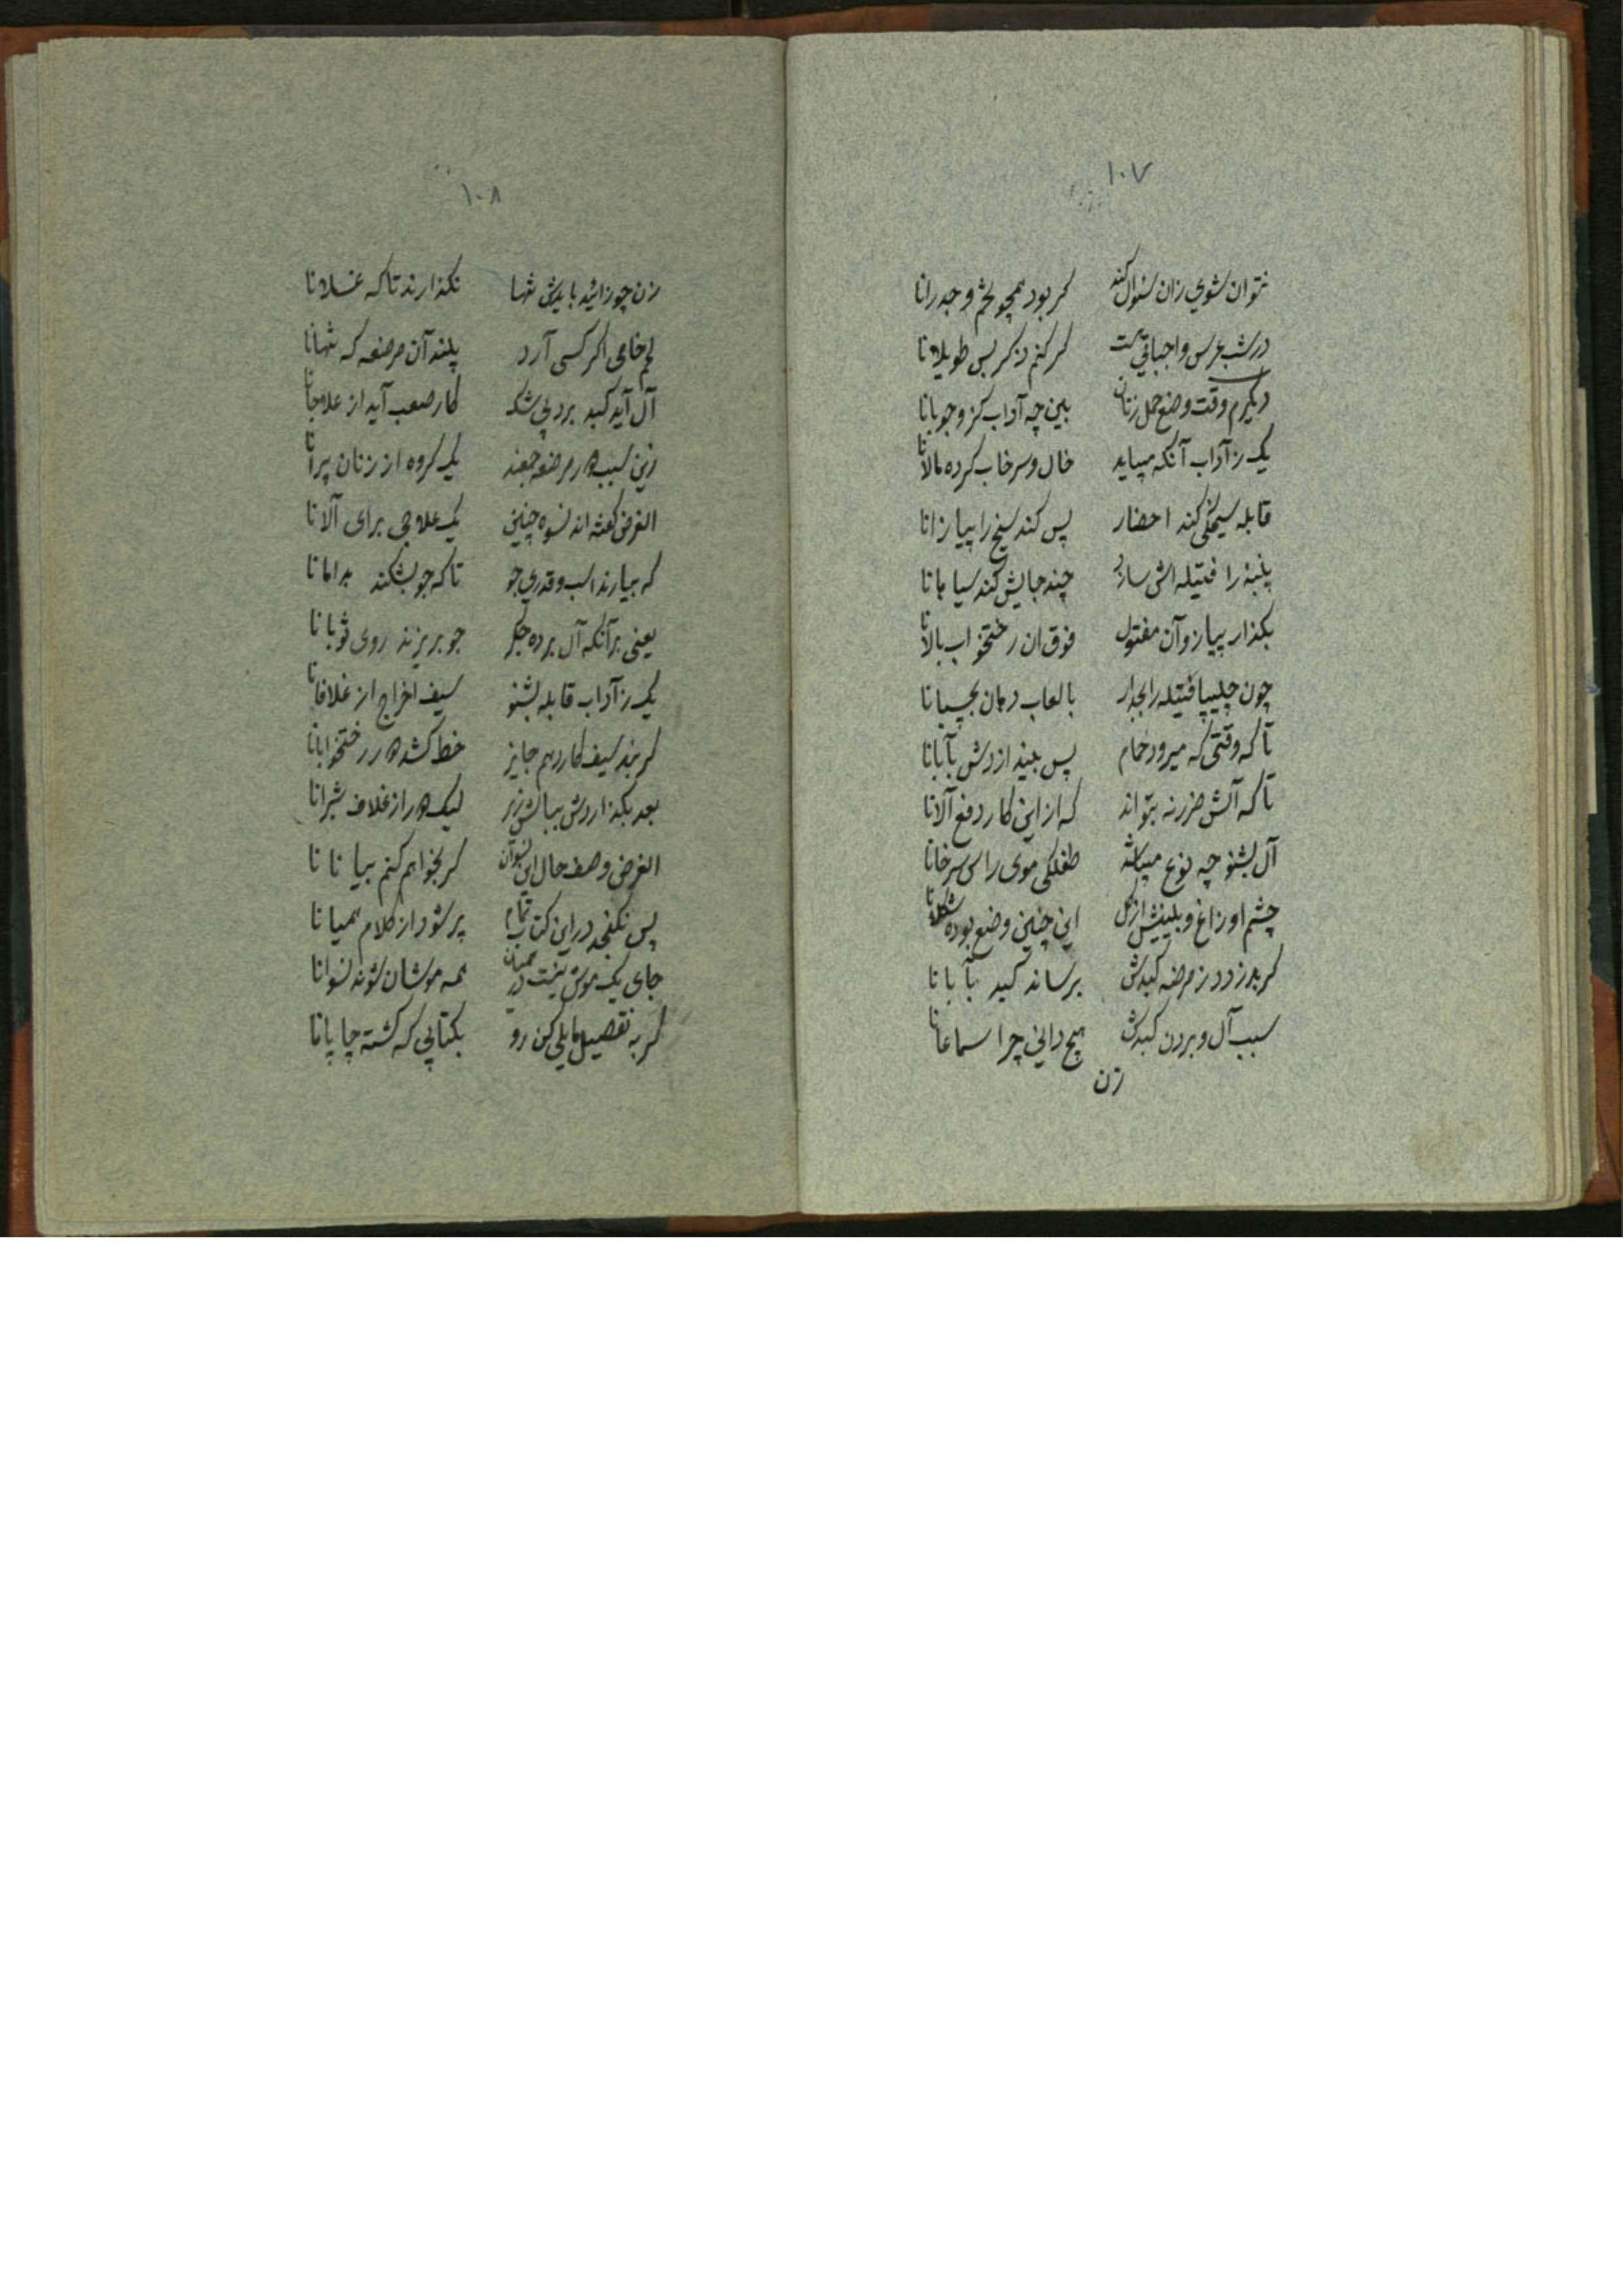 ۱۰۷
نتوان شوی زان سئوال کند گر بود همچو لخم و جدرانا
در شب عرس واجباتی هست گر کنم ذکر بس طویلانا
دیگرم وقت وضع حمل زنان بین چه آداب کز وجوبانا
یک ز آداب آنکه میباید خال و سرخاب کرده مالانا
قابله سیخکی کند احضار پس کند سیخ را پیازانا
پنبه را فتیله اش سازد چند جایش کند سیاهانا
بگذار پیاز و آن مفتول فوق ان رختخواب بالانا
چون چلیپا فتیله را بجدار با لعاب دهان بچسبانا
تا که وقتی که میرود حمام پس ببیند ازدش بآبانا
تا که آلش ضرر نه بتواند که از این کار دفع آلانا
آل بشنو چه نوع میباشد طفلکی موی راس سرخانا
چشم او زاغ و بینیش از گل این چنین وضع بوده شکلانا
گر بدزدد ز مرضعه کبدش برساند کبد بآبانا
سبب آل و بردن کبدش هیچ دانی چرا سماعانا
زن
۱۰۸
زن چو زائید بایدش تنها نگذارند تا که غسلانا
لحم خامی اگر کسی آرد بیند آن مرضعه که تنهانا
آل آید کبد برد بی شک کار صعب آید از علاجانا
زین سبب دور مرضعه جمعند یک گروه از زنان پیرانا
الغرض گفته اند نسوه چنین یک علاجی برای آلانا
که بیارند اسب و قدری جو تا که جو بشکند بدامانا
یعنی برآنکه آل برده جگر جو بریزند روی ثوبانا
یک ز آداب قابله بشنو سیف اخراج از غلافانا
گر نبد سیف کارد هم جایز خط کشد دور رختخوابانا
بعد بگذاردش ببالش زیر لیک دور از غلاف شبرانا
الغرض وصف حال این نسوان گر بخواهم کنم بیانانا
پس نگنجد در این کتاب تمام پر شود از کلام همیانا
جای یک موش نیست در همیان همه موشان شوند نسوانا
گر به تفصیل مایلی کن رو بکتابی که گشته چاپانا